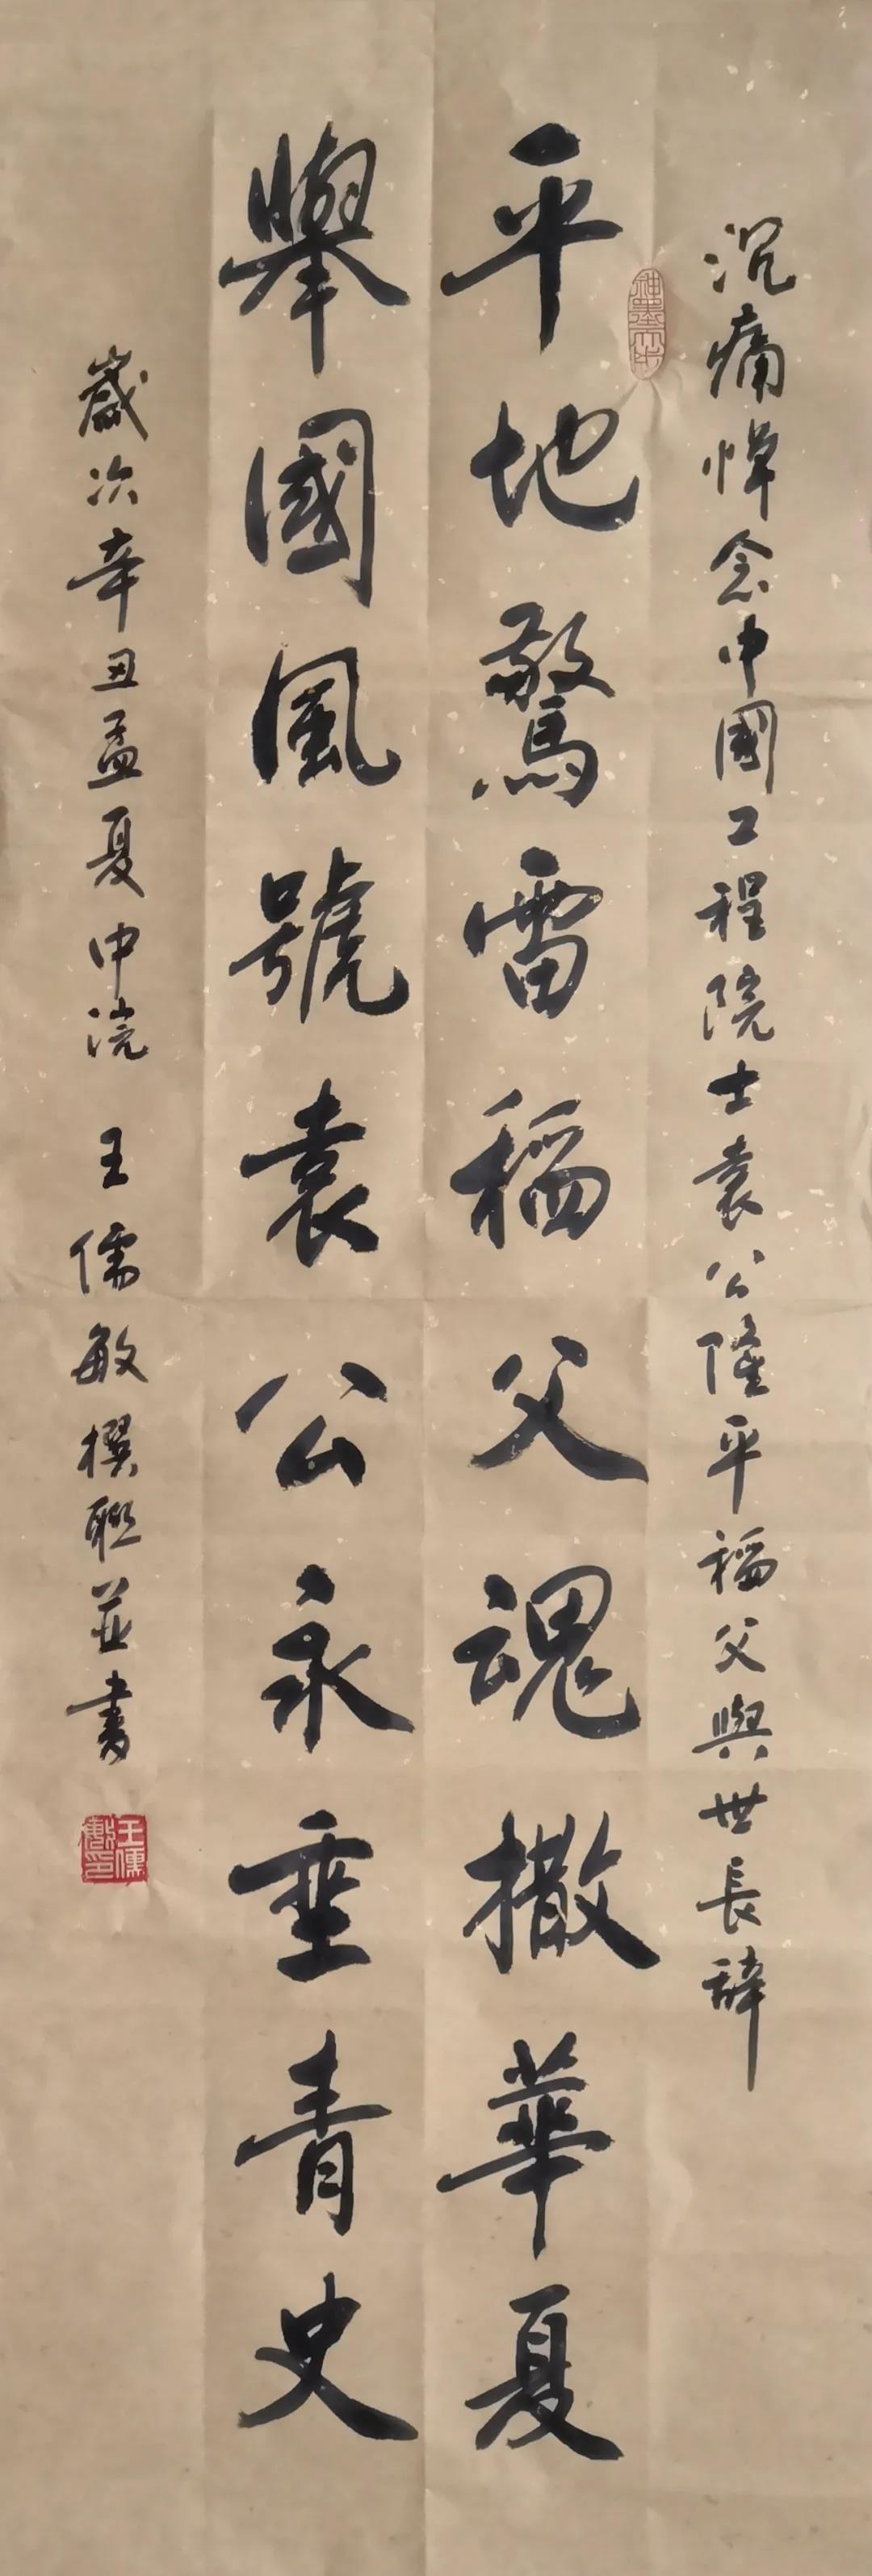 沉痛悼念中國工程院士袁公隆平稻父與世長辞
平地驚雷稻父魂撒華夏
舉國風號袁公永垂青史
歲次辛丑孟夏中浣 王儒敏撰聯並書
王儒敏印